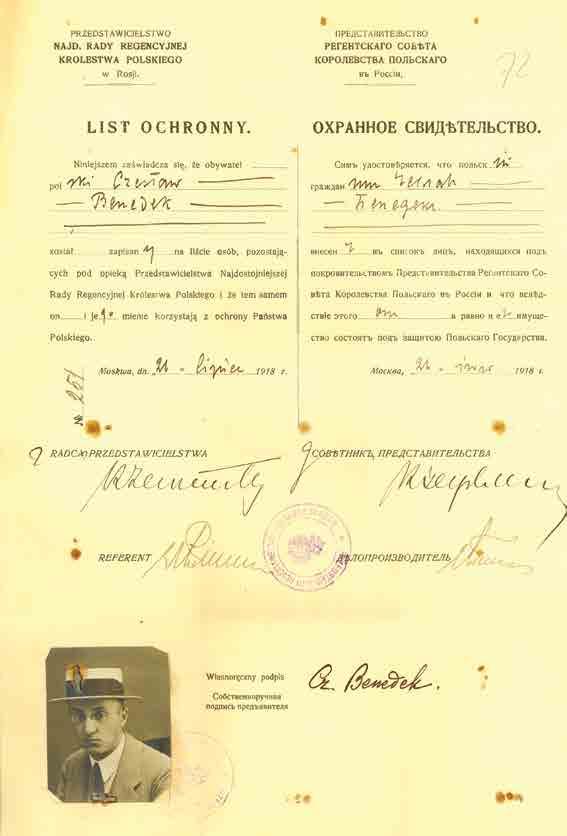 PRZEDSTAWICIELSTWO
NAJD. RADY REGENCYJNEJ
KROLESTWA POLSKIEGO
w Rosji.
LIST OCHRONNY.
Niniejszem zaświadcza się, że obywatel
pol ski Czesław
Benedek
został zapisan y na liście osób, pozostają-
cych pod opieką Przedstawicielstwa Najdostojniejszej
Rady Regencyjnej Królestwa Polskiego i że tem samem
on i je go mienie korzystają z ochrony Państwa
Polskiego.
Moskwa, dn. 21 lipiec 1918 r.
№ 251
ПРЕДСТАВИТЕЛЬСТВО
РЕГЕНТСКАГО СОВѢТА
КОРОЛЕВСТВА ПОЛЬСКАГО
въ Россіи.
72
ОХРАННОЕ СВИДѢТЕЛЬСТВО.
Симъ удостовѣряется, что польск ій
граждан инъ Чеславъ
Бенедекъ
внесен ъ въ списокъ лицъ, находящихся подъ
покровительствомъ Представительства Регентскаго Со-
вѣта Королевства Польскаго въ Россіи и что вслѣд-
ствіе этого онъ а равно и е имуще-
ство состоятъ подъ защитою Польскаго Государства.
Москва, 21 1918 г.
RADCA PRZEDSTAWICIELSTWA
СОВѢТНИКЪ ПРЕДСТАВИТЕЛЬСТВА
REFERENT
ДѢЛОПРОИЗВОДИТЕЛЬ
Własnoręczny podpis
Собственноручная
подпись предъявителя
Cz. Benedek.